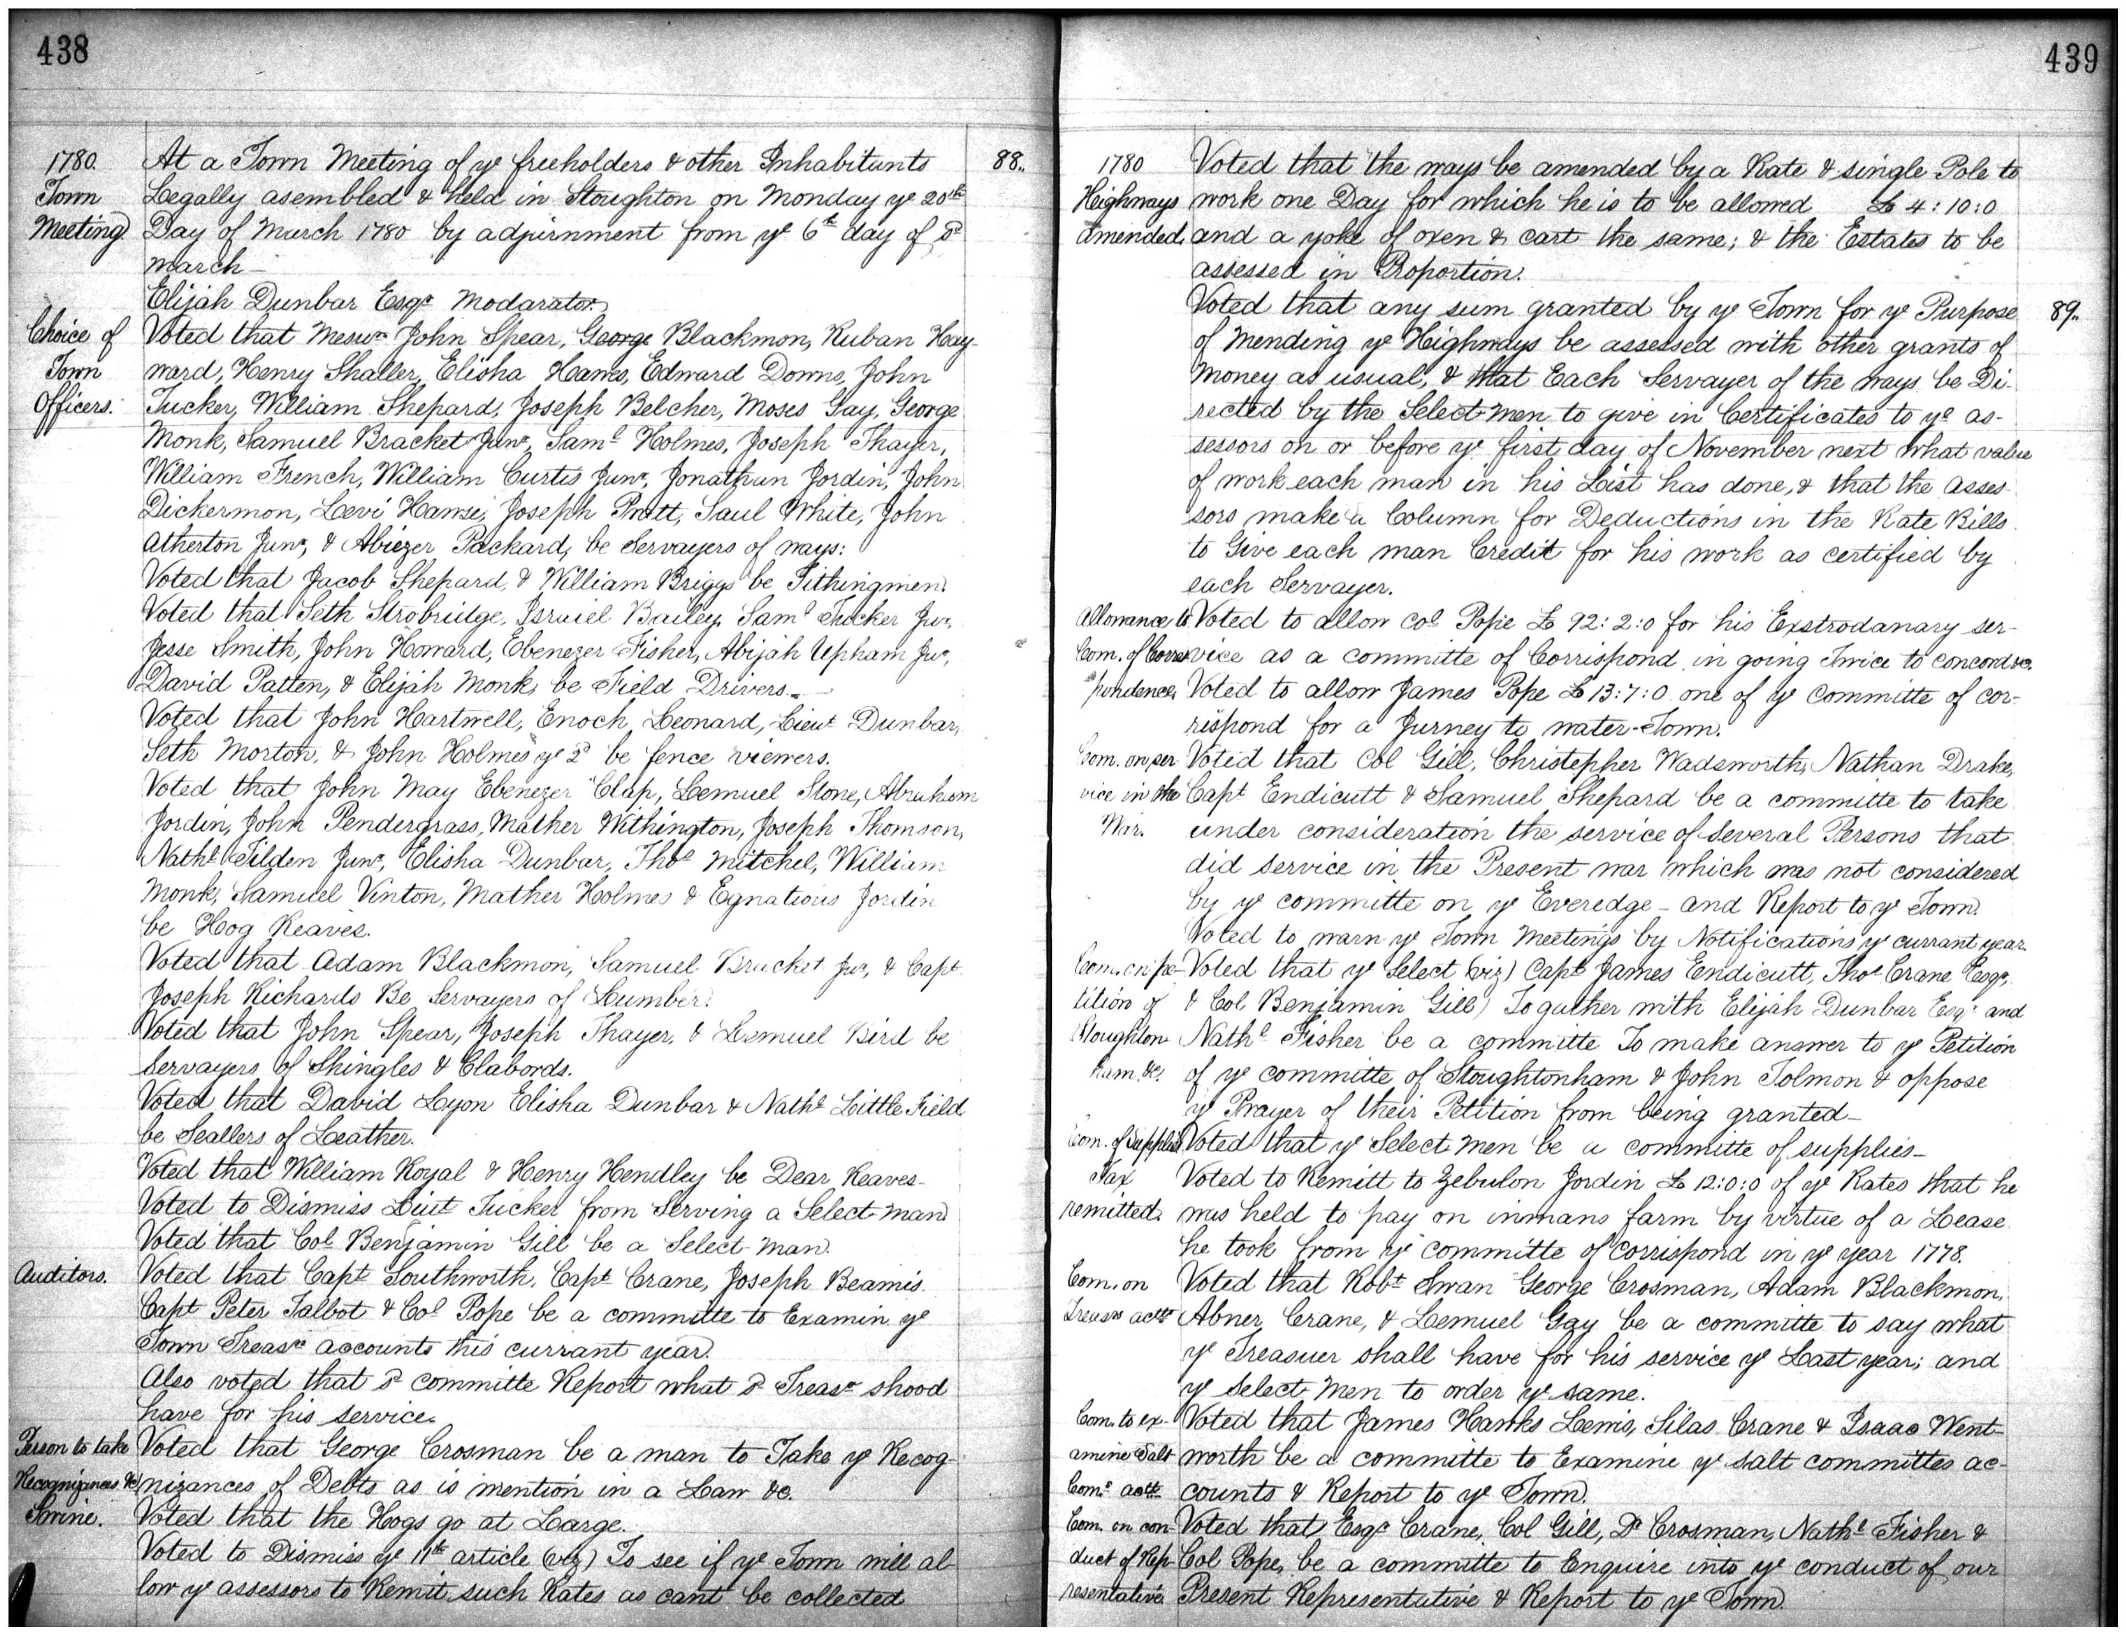 438
1780. At a Town Meeting of ye freeholders & other Inhabitants 88..
Town Legally asembled & held in Stoughton on Monday ye 20th
Meeting Day of March 1780 by adjurnment from ye 6th day of sd
march—
Elijah Dunbar Esqr Modarator.
Choice of Voted that Mesurs John Spear, George Blackmon, Ruban Hay-
Town ward, Henry Shaller, Elisha Hawes, Edward Downs, John
Officers. Tucker, William Shepard, Joseph Belcher, Moses Gay, George
Monk, Samuel Bracket Junr, Saml Holmes, Joseph Thayer,
William French, William Curtis Junr, Jonathan Jordin, John
Dickermon, Levi Hawse, Joseph Pratt, Saul White, John
Atherton Junr, & Abiezer Packard, be Servayers of ways:
Voted that Jacob Shepard, & William Briggs be Tithingmen.
Voted that Seth Strobridge, Israiel Bailey, Saml Tucker Jur,
Jesse Smith, John Howard, Ebenezer Fisher, Abijah Upham Jur,
David Patten, & Elijah Monk, be Field Drivers.—
Voted that John Hartwell, Enoch Leonard, Lieut Dunbar,
Seth Morton, & John Holmes ye 2d be fence viewers.
Voted that John May Ebenezer Clap, Lemuel Stone, Abraham
Jordin, John Pendergrass, Mather Withington, Joseph Thomson,
Nathl Tilden Junr, Elisha Dunbar, Thos Mitchel, William
Monk, Samuel Vinton, Mather Holmes & Egnatious Jordin
be Hog Reaves.
Voted that Adam Blackmon, Samuel Bracket Jur, & Capt
Joseph Richards Be Servayers of Lumber.
Voted that John Spear, Joseph Thayer, & Lemuel Bird be
Servayers of Shingles & Clabords.
Voted that David Lyon Elisha Dunbar & Nathl Little Field
be Seallers of Leather.
Voted that William Royal & Henry Hendley be Dear Reaves—
Voted to Dismiss Liut Tucker from Serving a Select man
Voted that Col Benjamin Gill be a Select man.
Auditors. Voted that Capt Southworth, Capt Crane, Joseph Beamis
Capt Peter Talbot & Col Pope be a committe to Examin ye
Town Treasrs accounts this currant year.
Also voted that sd committe Report what sd Treasr shood
have for his service.
Person to take Voted that George Crosman be a man to Take ye Recog-
Recognizances &c nizances of Debts as is mention in a Law &c.
Swine. Voted that the Hogs go at Large.
Voted to Dismiss ye 11th article (viz) To see if ye Town will al-
low ye assessors to Remit such Rates as cant be collected
439
1780 Voted that the ways be amended by a Rate & single Pole to
Heighways work one Day for which he is to be allowed £ 4:10:0
amended. and a yoke of oxen & cart the same; & the Estates to be
assessed in Proportion.
Voted that any sum granted by ye Town for ye Purpose 89..
of Mending ye Heighways be assessed with other grants of
Money as usual, & that Each Servayer of the ways be Di-
rected by the Select men to give in Certificates to ye as-
sessors on or before ye first day of November next what value
of work each man in his List has done, & that the asses-
sors make a Column for Deductions in the Rate Bills
to Give each man Credit for his work as certified by
each Servayer.
Allowance to Voted to allow Col Pope £ 92:2:0 for his Exstrodanary ser-
Com. of Corres vice as a committe of Corrispond in going Twice to concord &c.
pondence. Voted to allow James Pope £ 13:7:0 one of ye committe of cor-
rispond for a Jurney to water-Town.
Com. on ser Voted that Col Gill, Christepher Wadsworth, Nathan Drake,
vice in the Capt Endicutt & Samuel Shepard be a committe to take
War. under consideration the service of Several Persons that
did service in the Present war which was not considered
by ye committe on ye Everedge— and Report to ye Town.
Voted to warn ye Town Meetings by Notifications ye currant year.
Com. on pe- Voted that ye Select (viz) Capt James Endicutt, Thos Crane Esqr,
tition of & Col Benjamin Gill) Togather with Elijah Dunbar Esqr and
Stoughton- Nathl Fisher be a committe To make answer to ye Petition
ham. &c. of ye committe of Stoughtonham & John Tolmon & oppose
ye Prayer of their Petition from being granted—
Com. of Supplies Voted that ye Select men be a committe of supplies—
Tax Voted to Remitt to Zebulon Jordin £ 12:0:0 of ye Rates that he
remitted. was held to pay on inmans farm by virtue of a Lease
he took from ye committe of corrispond in ye year 1778.
Com. on Voted that Robt Swan George Crosman, Adam Blackmon,
Treasrs actts Abner Crane, & Lemuel Gay be a committe to say what
ye Treasuer shall have for his service ye Last year; and
ye select men to order ye same.
Com. to ex- Voted that James Hawks Lewis, Silas Crane & Isaac Went-
amine Salt worth be a committe to Examine ye salt committes ac-
Coms actts counts & Report to ye Town.
Com. on con- Voted that Esqr Crane, Col Gill, Dr Crosman, Nathl Fisher &
duct of Rep- Col Pope, be a committe to Enquire into ye conduct of our
resentative Present Representative & Report to ye Town.